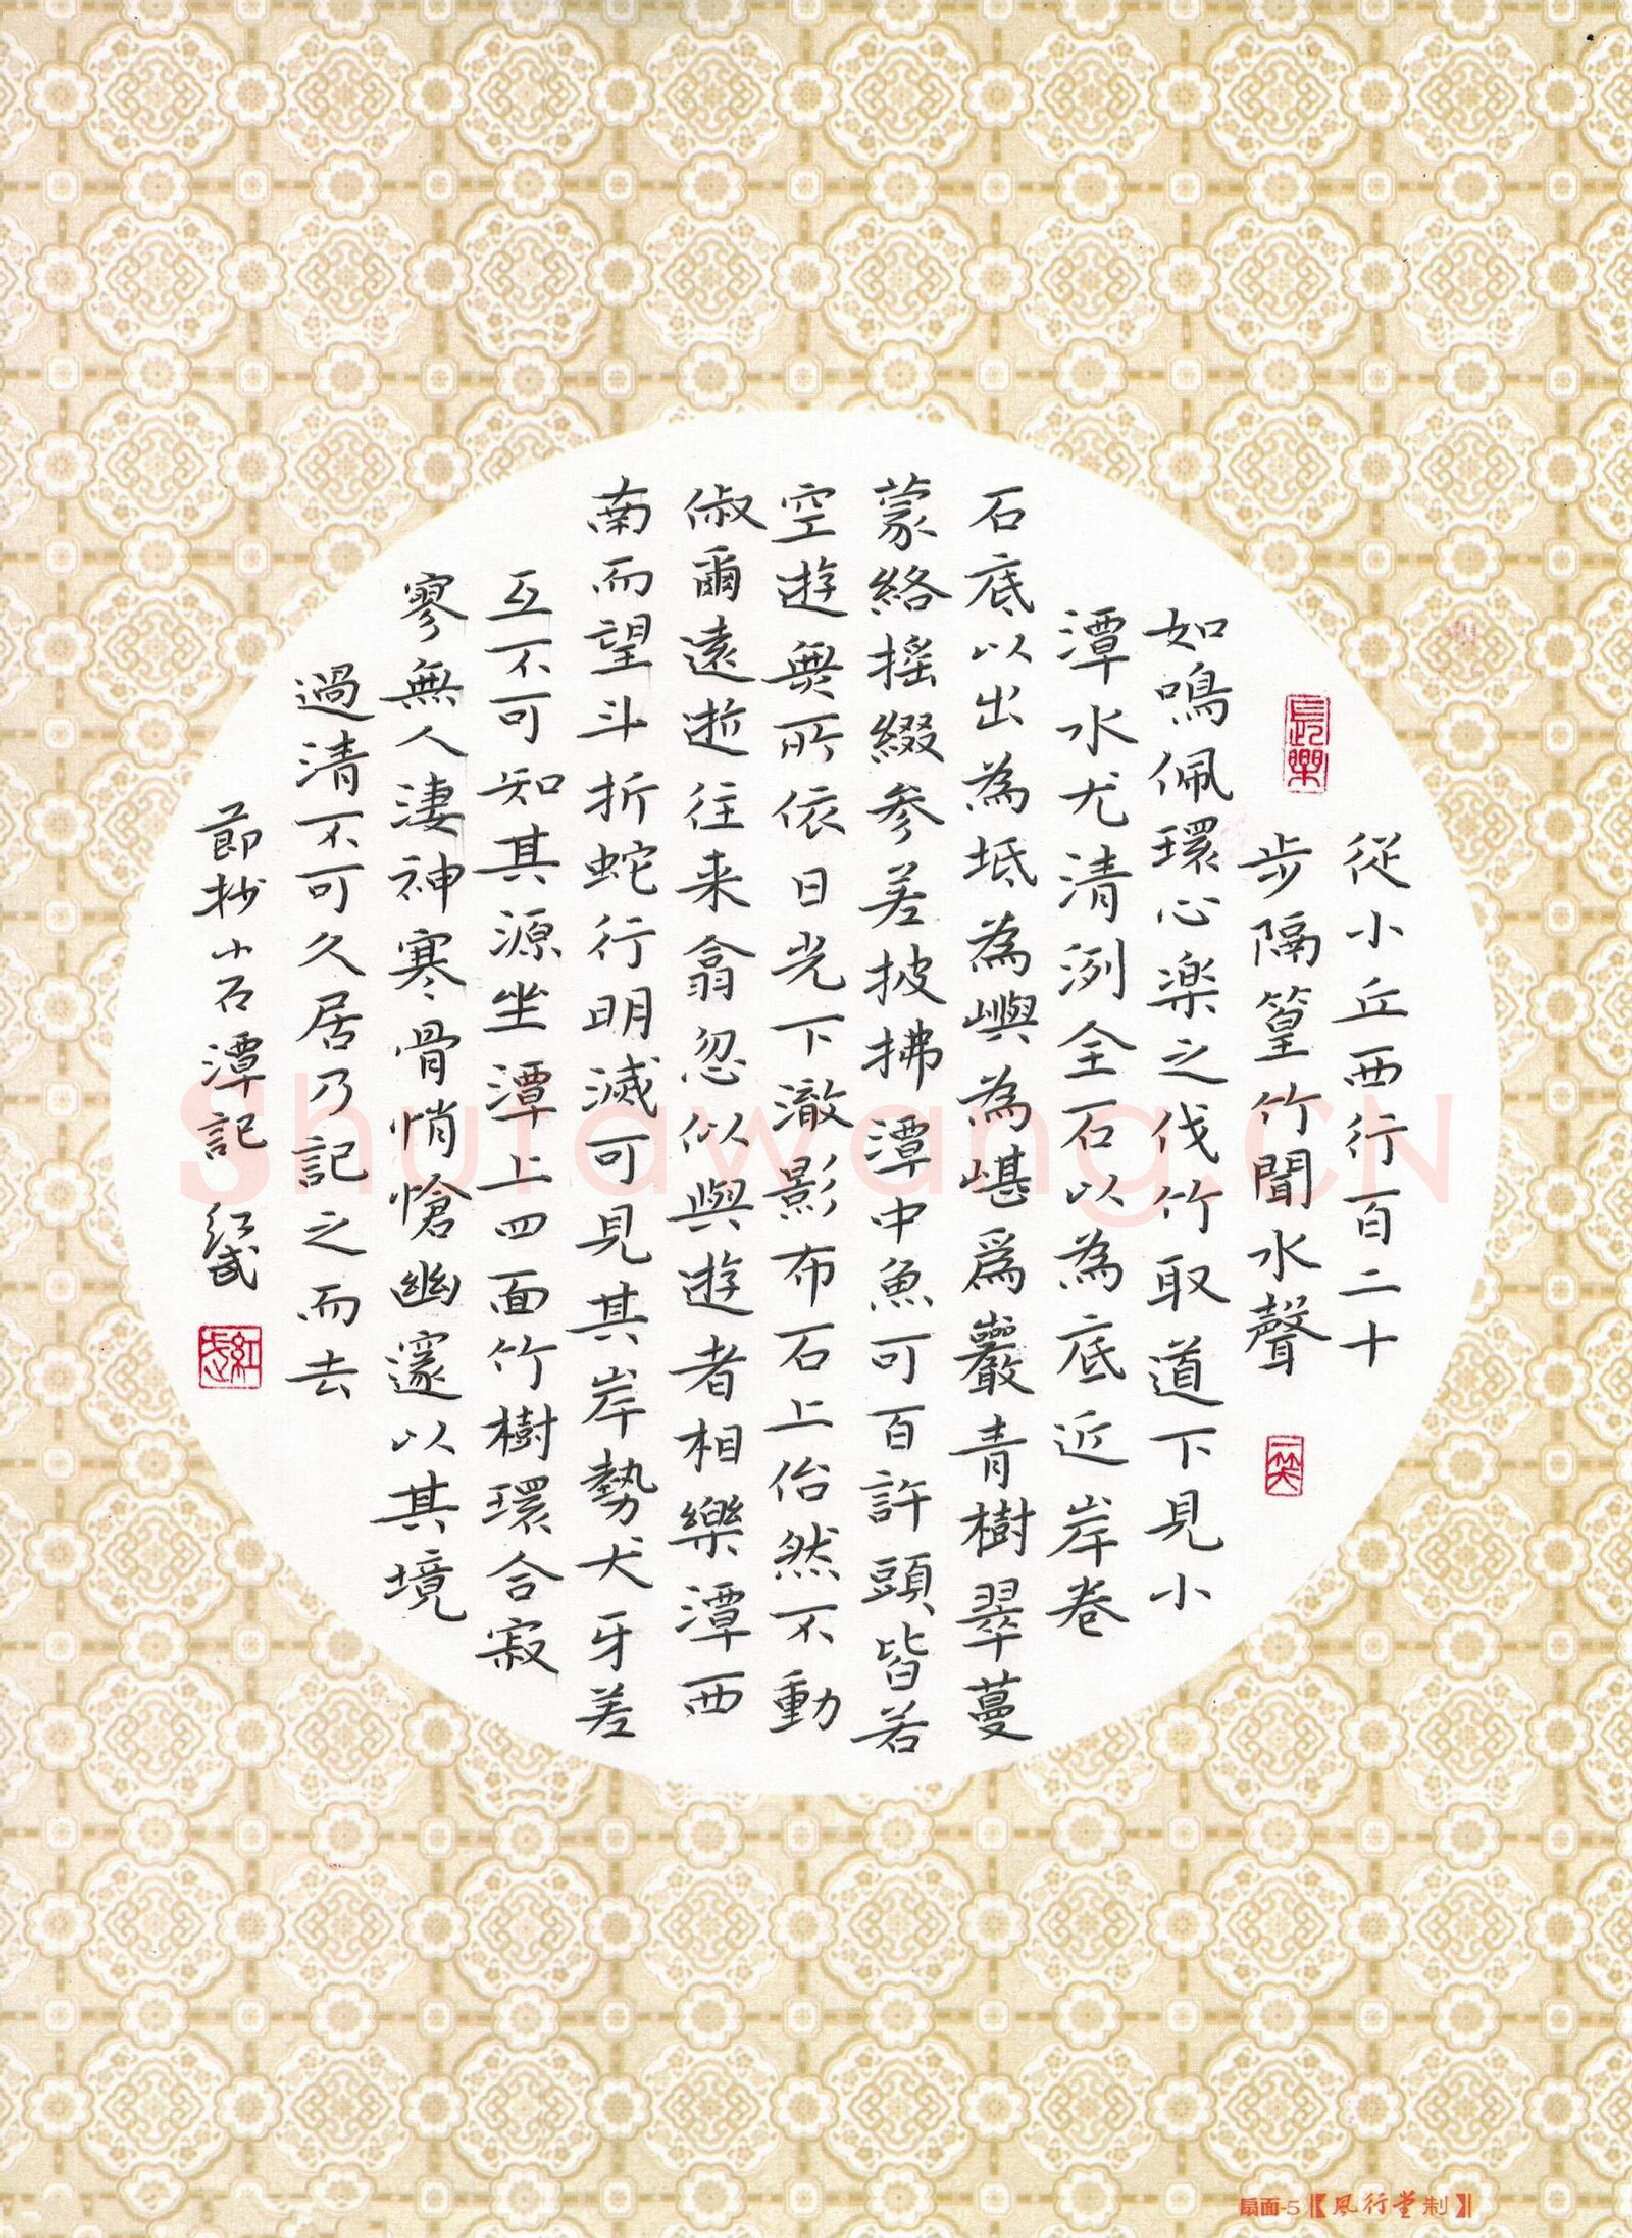 從小丘西行百二十
步隔篁竹聞水聲
如鳴佩環心樂之伐竹取道下見小
潭水尤清洌全石以為底近岸卷
石底以出為坻為嶼為嵁爲巖青樹翠蔓
蒙絡搖綴參差披拂潭中魚可百許頭皆若
空遊無所依日光下澈影布石上佁然不動
俶爾遠逝往来翕忽似與遊者相樂潭西
南而望斗折蛇行明滅可見其岸勢犬牙差
互不可知其源坐潭上四面竹樹環合寂
寥無人凄神寒骨悄愴幽邃以其境
過清不可久居乃記之而去
節抄小石潭記 紅武
長樂
一笑
Shufawang.CN
扇面-5【風行堂制】